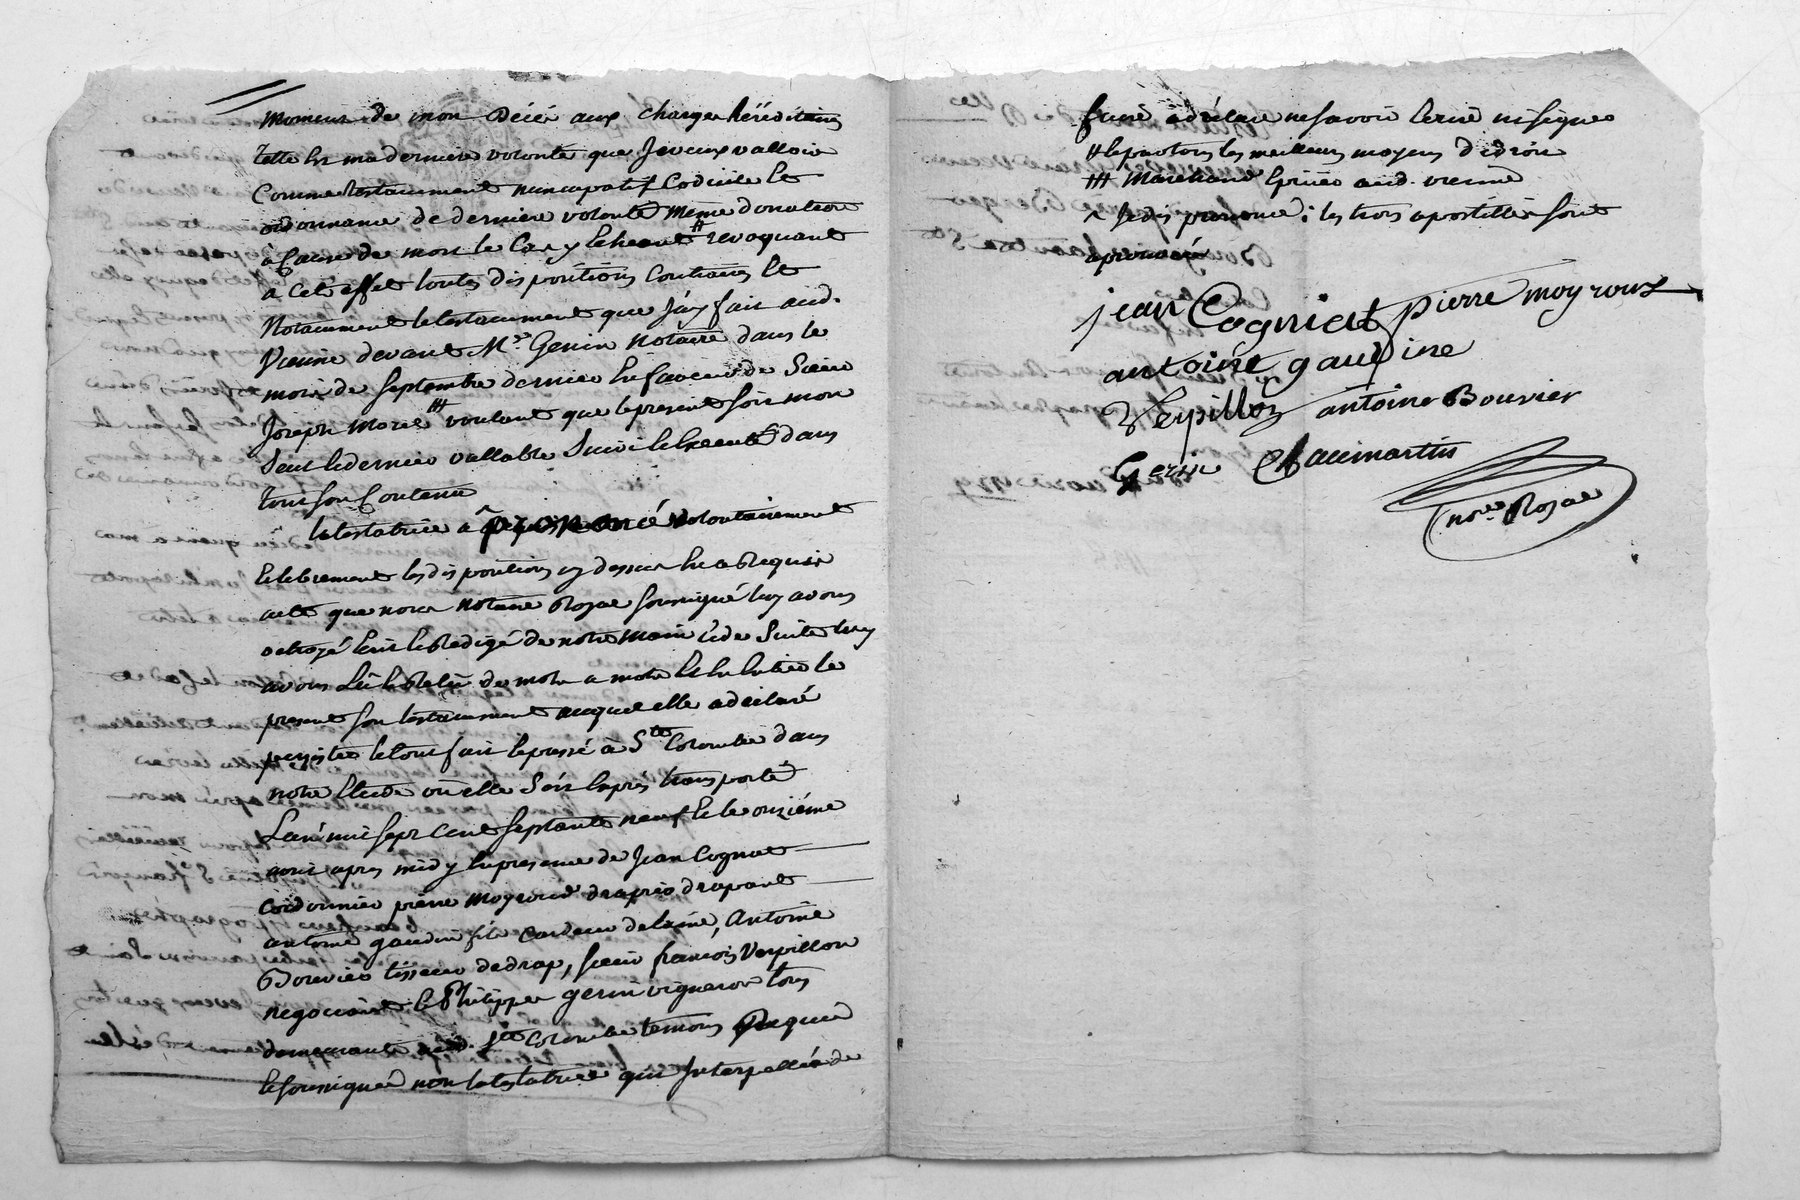 moment de mon décès aux charges héréditaires
telle est ma dernière volonté que Je veux valloir
Comme testamment nuncupatif Codicile et
ordonnance de dernière volonté même donation
à Cause de mort le Cas y échéant # revoquant
a cet effet toutes dispositions Contraires et
Notamment le testamment que J'ay fait aud.
Vienne devant Me Genin Notaire dans le
mois de Septembre dernier en faveur de Sieur
Joseph Morel ### voulant que le present soit mon
Seul et dernier vallable Suivi et executé dans
tout son Contenu
la testatrice a ^ prononcé volontairement
et librement les dispositions cy dessus et a Requis
acte que nous notaire Royal soussigné luy avons
octroyé Ecrit et Redigé de notre main et de Suite luy
avons Lû et Relû de mot a mot Et en Entier le
present son testamment auquel elle a déclaré
persister le tout fait et passé à Ste Colombe dans
notre Etude où elle s'est exprès transporté
L'an mil sept cent septante neuf et le onzième
avril après midy en presence de Jean Cognat
Cordonnier pierre moyroud drapier drapant
antoine gaudin fils Cardeur de laine, Antoine
Bouvier tisseur de drap, sieur françois Verpillon
negociant et Philippe gerin vigneron tous
demeurants aud. Ste Colombe temoins Requis
et soussignés non la testatrice qui Interpellée de
faire a déclaré ne savoir Ecrire ni signer
# et par tous les meilleurs moyens de droit
### Marchand Epicier aud. vienne
^ Je dis prononcé: les trois apostilles sont
approuvées
jean Cogniat pierre moyroux
antoine gaudine
Verpillon antoine Bouvier
Gerin Chaumartin
nore Royal